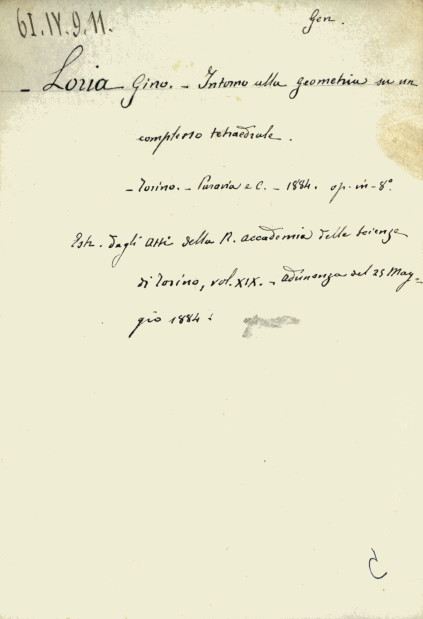 61.IV.9.11.
Gen.
- Loria Gino. - Intorno alla geometria su un
complesso tetraedrale.
- Torino. - Paravia e C. - 1884. op. in-8°
Estr. dagli Atti della R. Accademia delle Scienze
di Torino, vol. XIX. - Adunanza del 25 Mag-
gio 1884: